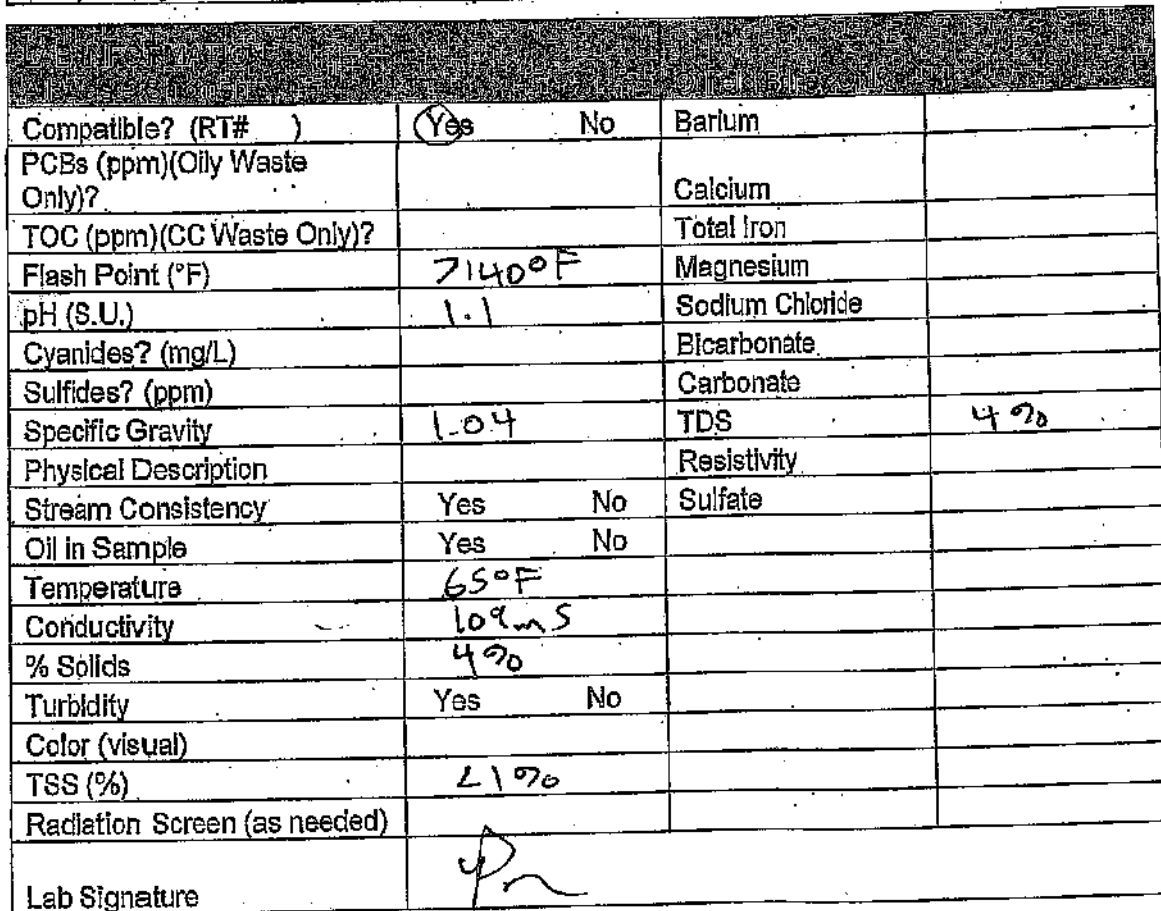 LAB INFORMATION
Compatible? (RT# ) Yes No Barium
PCBs (ppm)(Oily Waste
Only)? Calcium
TOC (ppm)(CC Waste Only)? Total Iron
Flash Point (°F) >140°F Magnesium
pH (S.U.) 1.1 Sodium Chloride
Cyanides? (mg/L) Bicarbonate
Sulfides? (ppm) Carbonate
Specific Gravity 1.04 TDS 4%
Physical Description Resistivity
Stream Consistency Yes No Sulfate
Oil in Sample Yes No
Temperature 65°F
Conductivity 109mS
% Solids 4%
Turbidity Yes No
Color (visual)
TSS (%) <1%
Radiation Screen (as needed)
Lab Signature